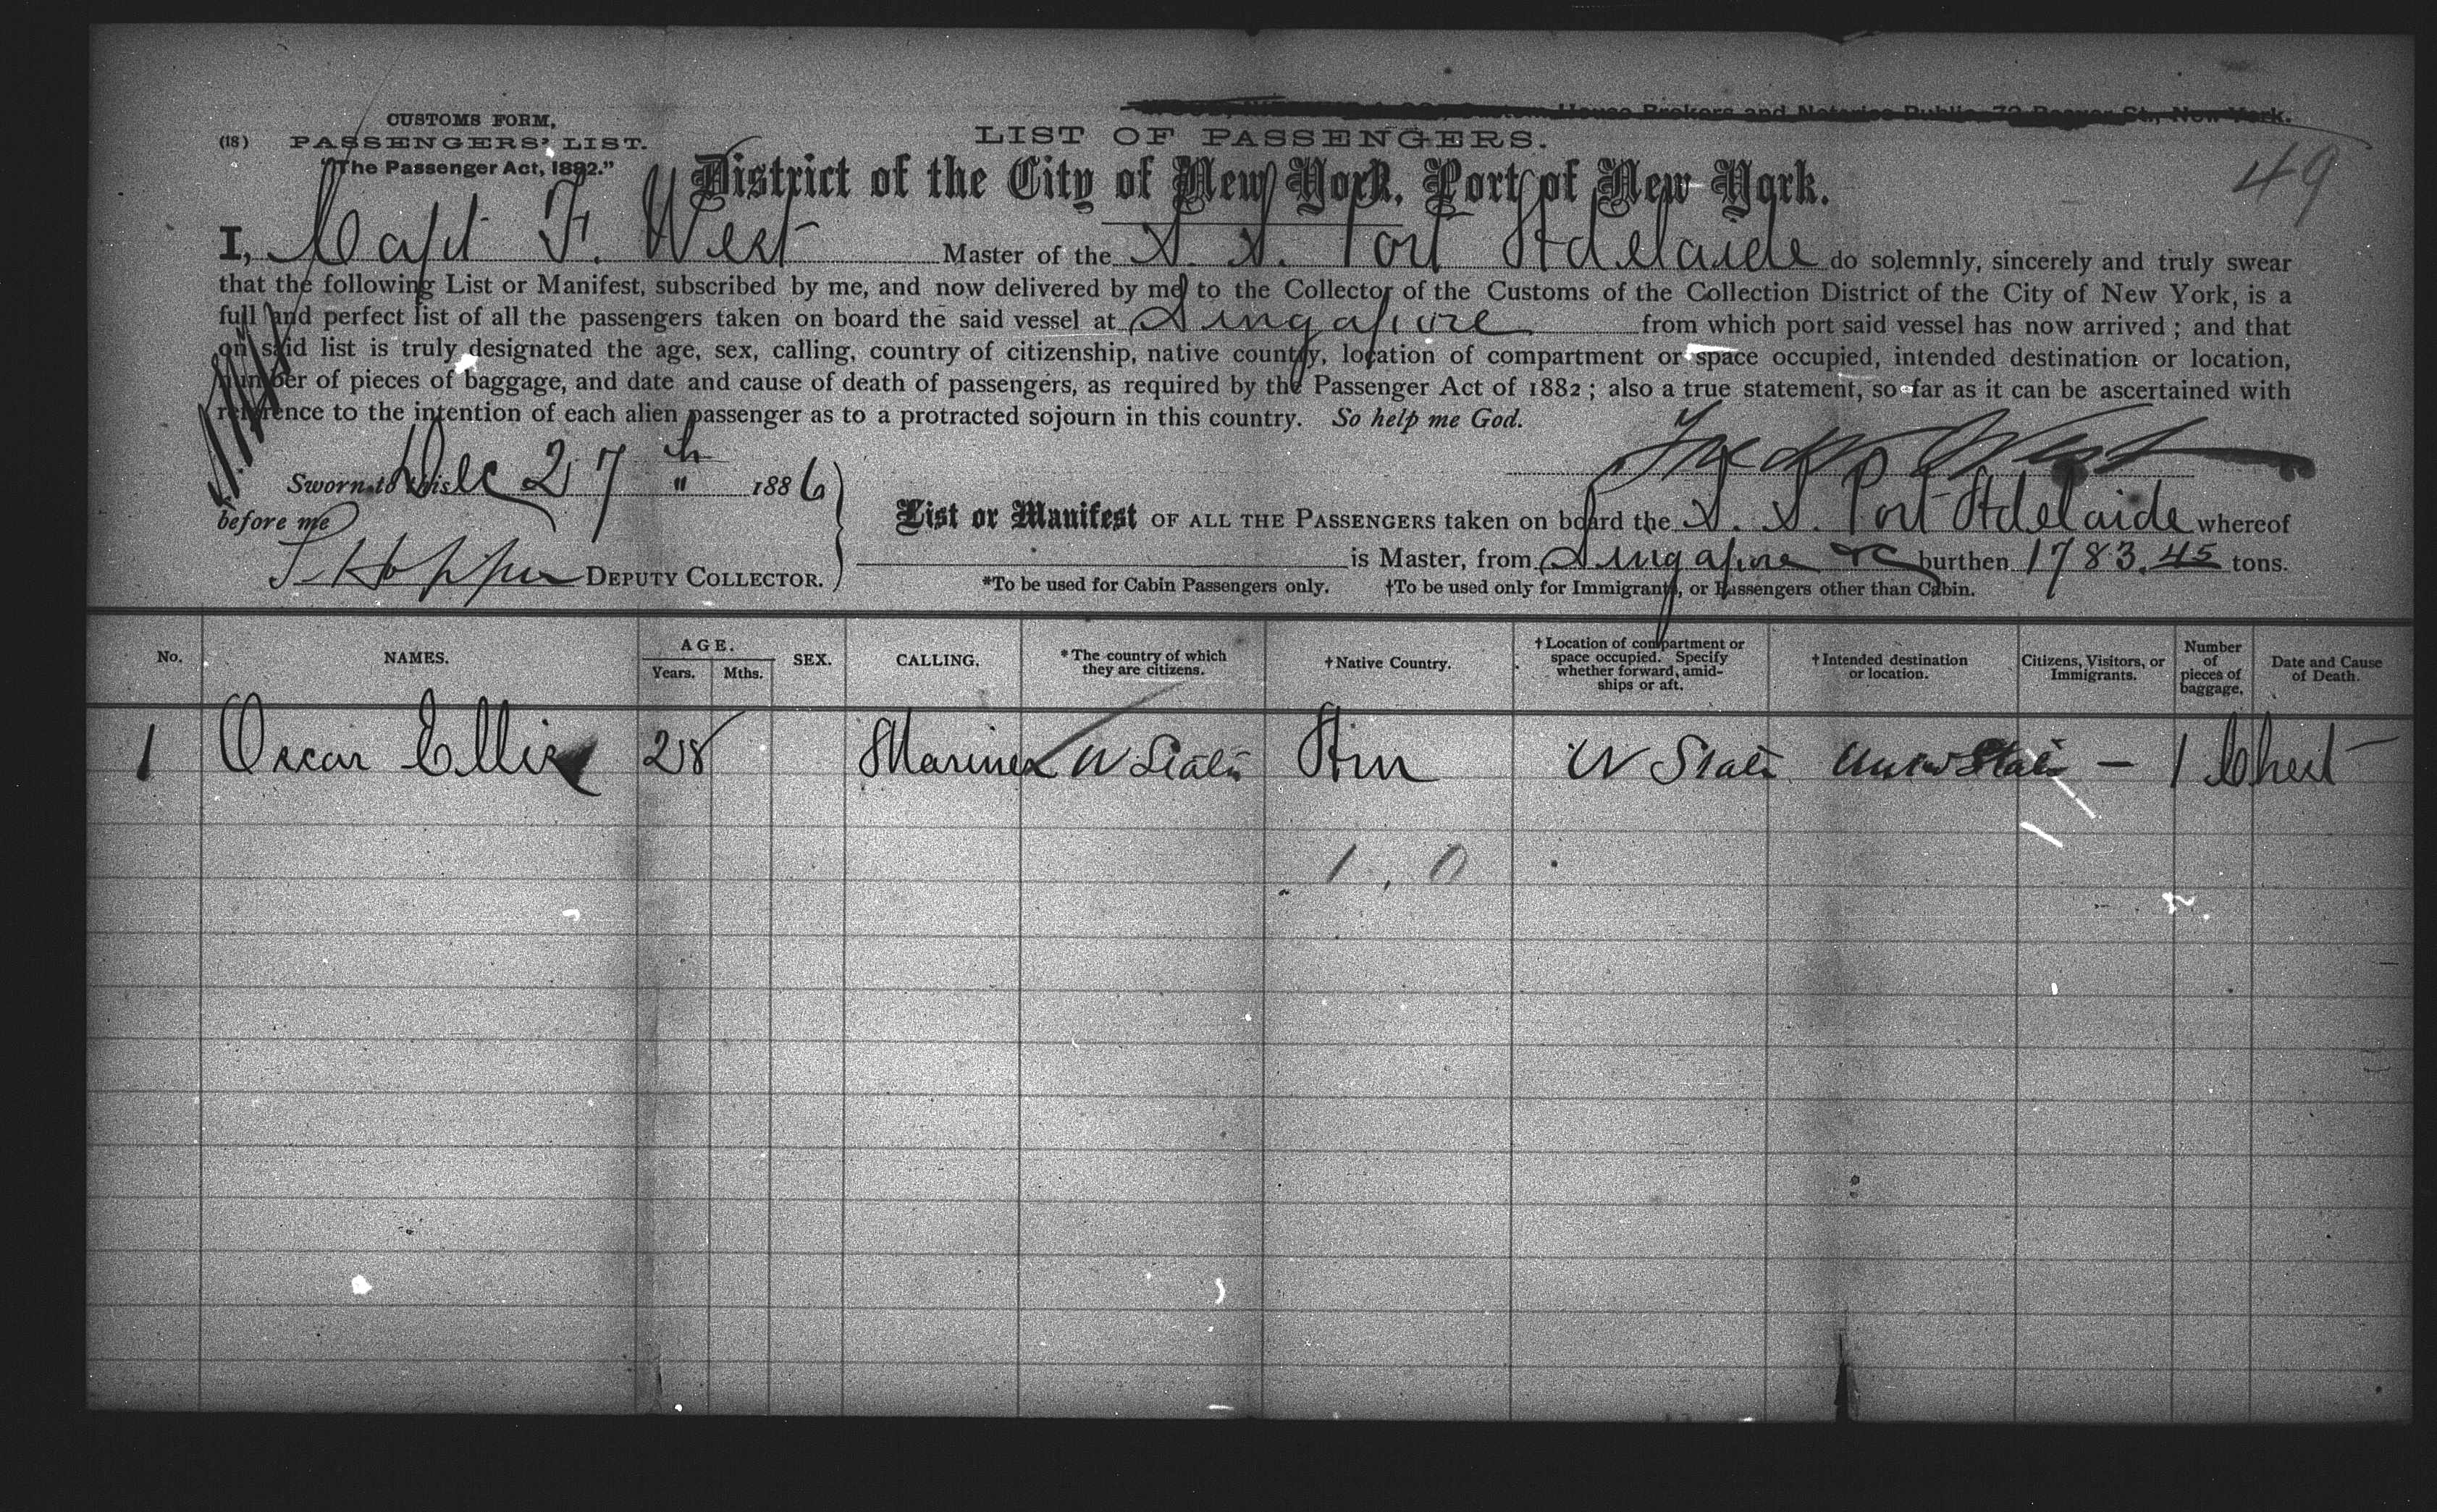 House Brokers and Notaries Public, 72 Beaver St., New York.
CUSTOMS FORM,
(18) PASSENGERS' LIST.
"The Passenger Act, 1882."
LIST OF PASSENGERS.
49
District of the City of New York, Port of New York.
I, Capt F. West Master of the S. S. Port Adelaide do solemnly, sincerely and truly swear
that the following List or Manifest, subscribed by me, and now delivered by me to the Collector of the Customs of the Collection District of the City of New York, is a
full and perfect list of all the passengers taken on board the said vessel at Singapore from which port said vessel has now arrived; and that
on said list is truly designated the age, sex, calling, country of citizenship, native country, location of compartment or space occupied, intended destination or location,
number of pieces of baggage, and date and cause of death of passengers, as required by the Passenger Act of 1882; also a true statement, so far as it can be ascertained with
reference to the intention of each alien passenger as to a protracted sojourn in this country. So help me God.
Fredk West
Sworn to this Dec 27th 1886
before me
Hopper DEPUTY COLLECTOR.
List or Manifest OF ALL THE PASSENGERS taken on board the S. S. Port Adelaide whereof
is Master, from Singapore &c burthen 1783.45 tons.
*To be used for Cabin Passengers only. †To be used only for Immigrants, or Passengers other than Cabin.
No. NAMES. AGE. Years. Mths. SEX. CALLING. *The country of which they are citizens. †Native Country. †Location of compartment or space occupied. Specify whether forward, amidships or aft. †Intended destination or location. Citizens, Visitors, or Immigrants. Number of pieces of baggage. Date and Cause of Death.
1 Oscar Ellis 28 Mariner U States Am U States States — 1 Chest —
1 , 0